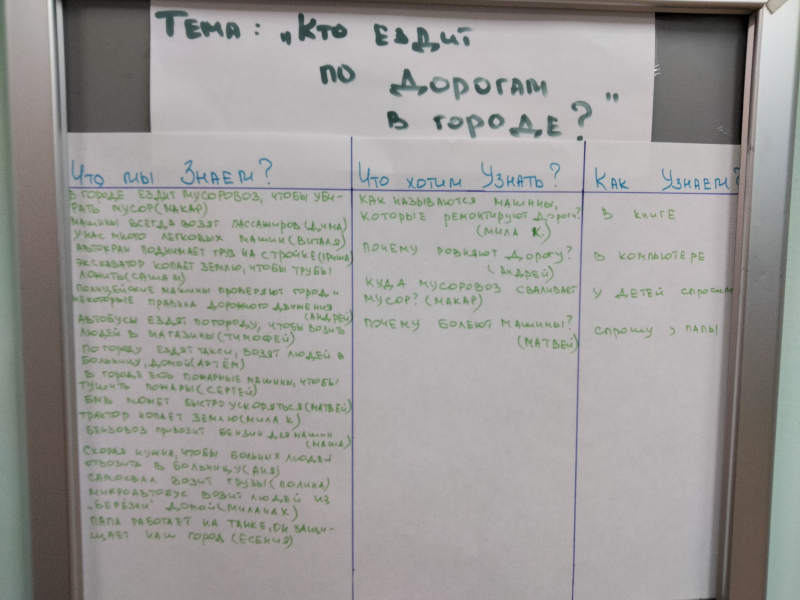 Тема: „Кто ездит
по дорогам
в городе?"
Что мы знаем?
В городе ездит мусоровоз, чтобы уби-
рать мусор (Макар)
Машины всегда возят пассажиров (Дима)
У нас много легковых машин (Виталя)
Автокран поднимает груз на стройке (Гриша)
Экскаватор копает землю, чтобы трубы
ложить (Саша М)
Полицейские машины проверяют город и
некоторые правила дорожного движения
(Андрей)
Автобусы ездят по городу, чтобы возить
людей в магазины (Тимофей)
По городу ездят такси, возят людей в
больницу, домой (Артём)
В городе есть пожарные машины, чтобы
тушить пожары (Сергей)
БМВ может быстро ускоряться (Матвей)
Трактор копает землю (Мила К)
Бензовоз привозит бензин для машин
(Маша)
Скорая нужна, чтобы больных людей
отвозить в больницу (Аня)
Самосвал возит грузы (Полина)
Микроавтобус возит людей из
„Берёзки" домой (Милана Х)
Папа работает на танке, он защи-
щает наш город (Есения)
Что хотим узнать?
Как называются машины,
которые ремонтируют дороги?
(Мила К)
Почему ровняют дорогу?
(Андрей)
Куда мусоровоз сваливает
мусор? (Макар)
Почему болеют машины?
(Матвей)
Как узнаем?
В книге
В компьютере
У детей спросим
Спрошу у папы